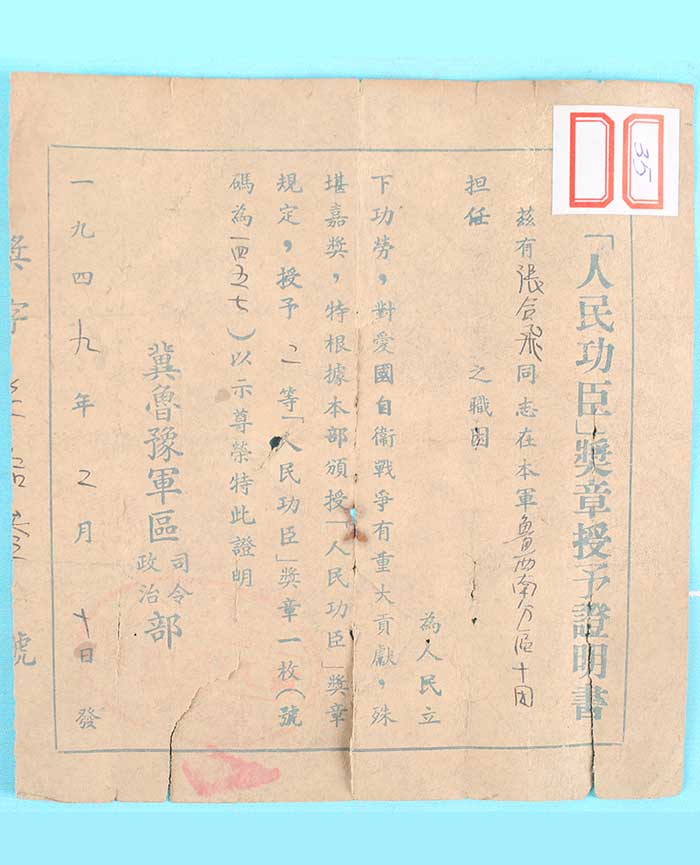 「人民功臣」獎章授予證明書
茲有張合飛同志在本軍魯西南分區十团
担任 之職因 為人民立
下功勞，對愛國自衛戰爭有重大貢獻，殊
堪嘉獎，特根據本部頒授「人民功臣」獎章
規定，授予二等「人民功臣」獎章一枚（號
碼為一四五七）以示尊榮特此證明
冀魯豫軍區 司令 政治 部
一九四九年二月十日發
獎字 號
35